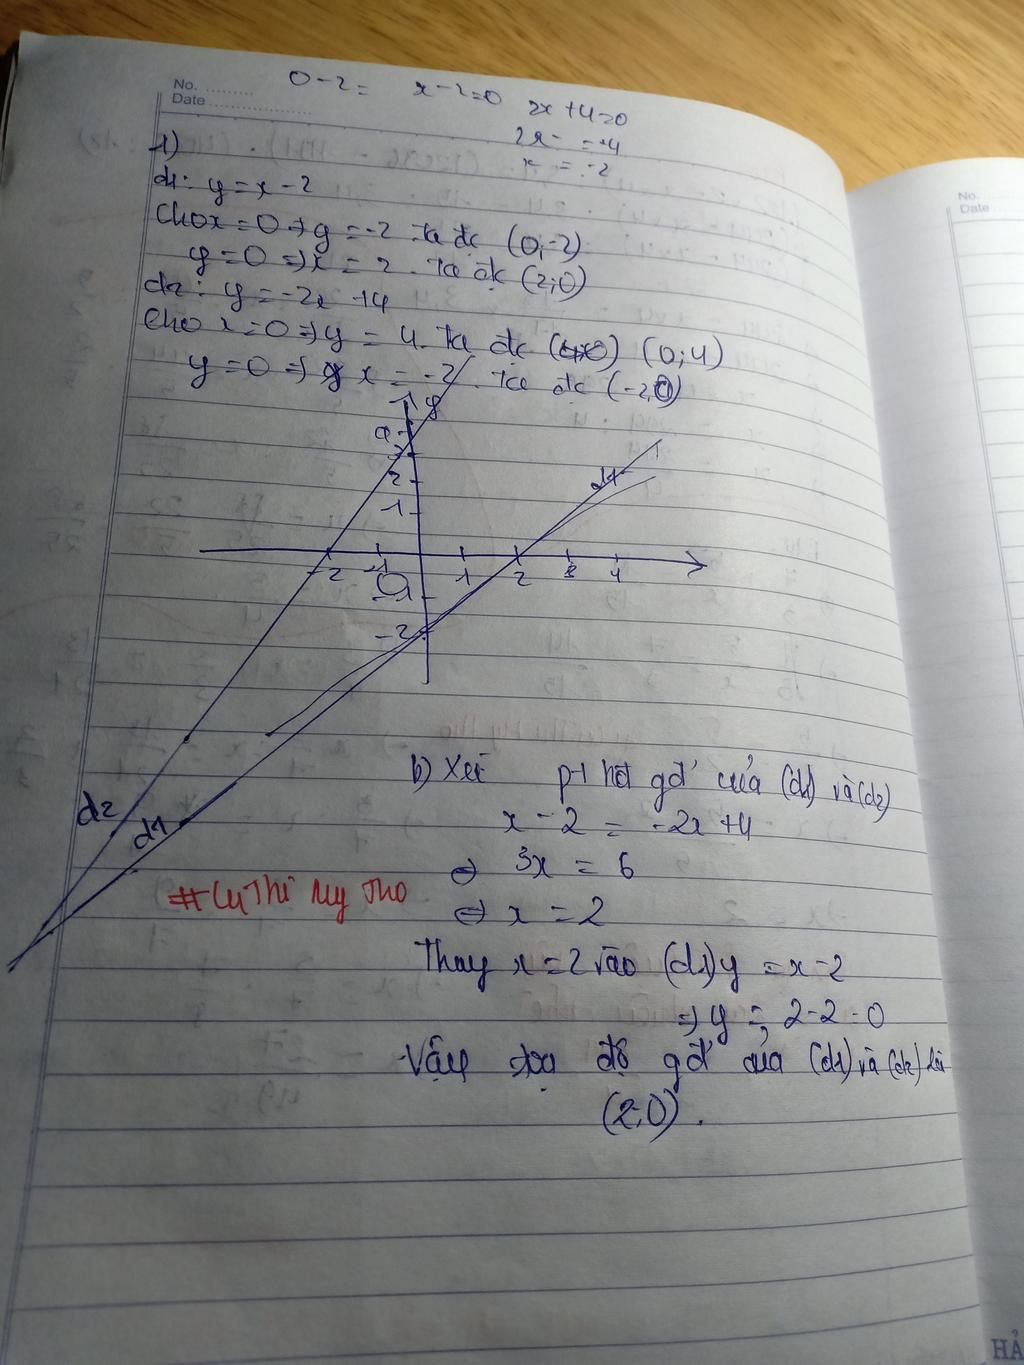 No. ......... 0-2= x-2=0 2x+4=0
Date ............... 2x = -4
x = -2
1)
d1: y=x-2
Cho x=0⇒y=-2 ta đc (0;-2)
y=0⇒x=2. ta đc (2;0)
d2: y=-2x+4
Cho x=0⇒y=4. ta đc (0;4)
y=0⇒ x=-2. ta đc (-2;0)
y
4
3
2
1
d1
-2 -1 O 1 2 3 4
-1
-2
d2
d1
b) Xét pt hđ gđ của (d1) và (d2)
x-2 = -2x+4
⇔ 3x = 6
#Lý Thị My Tho
⇔ x = 2
Thay x=2 vào (d1) y = x-2
⇒ y = 2-2=0
Vậy tọa độ gđ của (d1) và (d2) là
(2;0).
No.
Date
HẢ